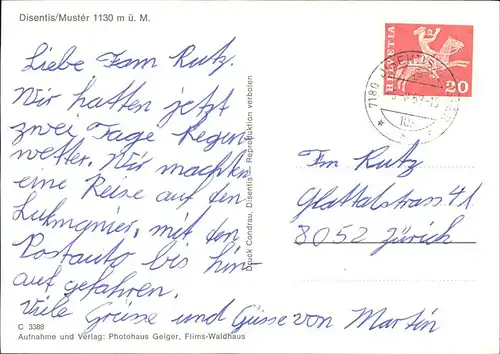 Disentis/Mustér 1130 m ü. M.
Liebe Fam Rutz.
Wir hatten jetzt
zwei Tage Regen-
wetter. Wir machten
eine Reise auf den
Lukmanier, mit dem
Postauto bis hin-
auf gefahren.
Viele Grüsse und Güsse von Martin
C 3388
Aufnahme und Verlag: Photohaus Geiger, Flims-Waldhaus
Druck Condrau, Disentis - Reproduktion verboten
HELVETIA
20
7180 DISENTIS
Fm Rutz
Glattalstrass.41
8052 Zürich